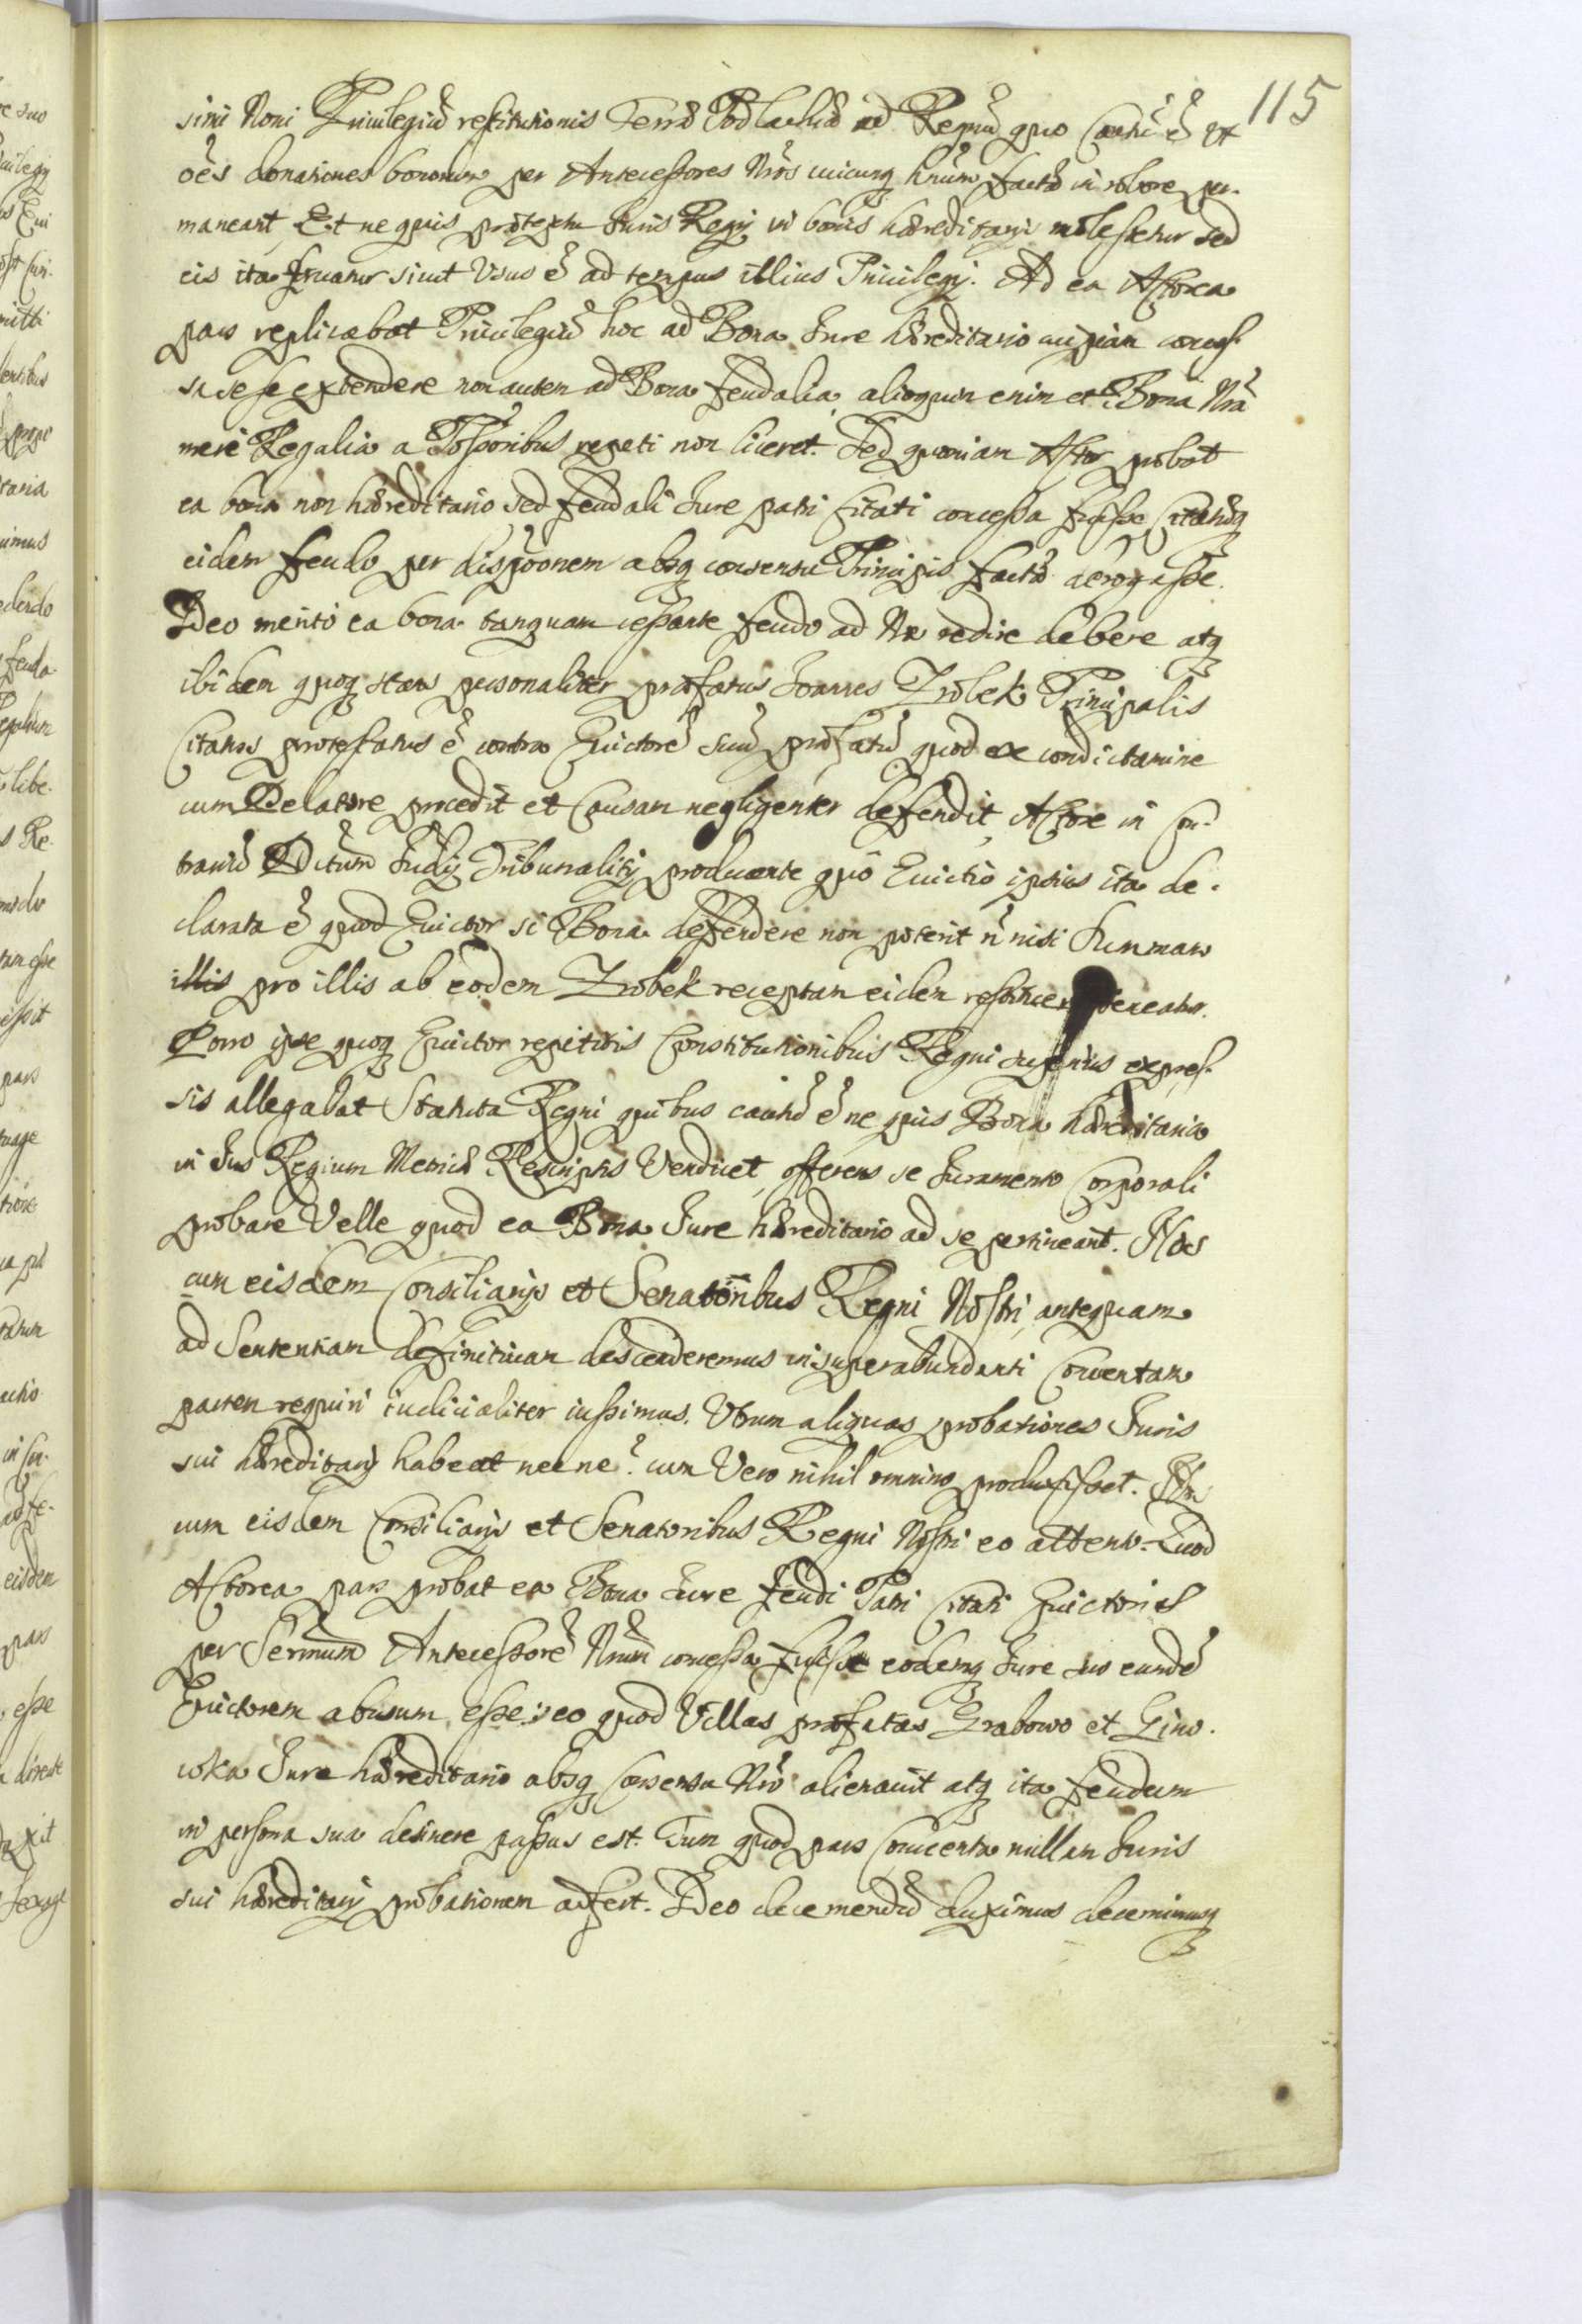 115
simi Noni Priuilegiũ restitutionis Terræ Podlachiæ ad Regnũ quo Cautũ ẽ ut
oẽs donationes bonorum per Antecessores Nr̃os cuicunq̃ hnũm factæ in robore per-
maneant, Et ne quis prætextu Iuris Regij in bonis hæreditarijs molestetur sed
eis ita fruatur sicut Vsus ẽ ad tempus illius Priuilegij. Ad ea Actorea
pars replicabat Priuilegiũ hoc ad Bona Iure hæreditario cuipiam conces-
sa sese extendere non autem ad Bona feudalia, alioquin enim et Bona Nr̃a
mere Regalia a Possõribus repeti non liceret. Sed quoniam Actor probat
ea bona non hæreditario sed feudali Iure patri Citati concessa fuisse Citatũq̃
eidem feudo per dispõonem absq̃ consensu Principis factã derogasse.
Ideo merito ea bona tanquam cessante feudo ad Nos redire debere atq̃
ibidem quoq̃ stans personaliter præfatus Ioannes Zrobek Principalis
Citatus protestatus ẽ contra Euictorẽ suũ præfatũ quod ex condictamine
cum Delatore procedit et Causam negligenter defendit, Actore in con-
trariũ Dictum Iudicij Tribunalitij producente quo Euictio ipsius ita de-
clarata ẽ quod Euictor si Bona defendere non poterit ñ nisi Summam
illis pro illis ab eodem Zrobek receptam eidem restituere teneatur.
Porro ipse quoq̃ Euictor repetitis Constitutionibus Regni superius expres-
sis allegabat Statuta Regni quibus cautũ ẽ ne quis Bona hæreditaria
in Ius Regium Metricæ Rescriptis Vendicet, offerens se Iuramento Corporali
probare Velle quod ea Bona Iure hæreditario ad se pertineant. Nos
cum eisdem Consiliarijs et Senatoribus Regni Nostri, antequam
ad Sententiam definitiuam descenderemus in superabundanti Conuentam
partem requiri iudicialiter iussimus. Vtrum aliquas probationes Iuris
sui hæreditarij habeat nec ne? cum Vero nihil omnino produxisset. Nos
cum eisdem Consiliarijs et Senatoribus Regni Nostri eo attento. Quod
Actorea pars probat ea Bona Iure feudi Patri Citati Euictoris
per Sermũm Antecessorẽ Nr̃um concessa fuisse eodemq̃ Iure suo eundẽ
Euictorem abusum esse, eo quod Villas præfatas Grabowo et Gino-
wka Iure hæreditario absq̃ Consensu Nr̃o alienauit atq̃ ita feudum
in persona sua desinere passus est. Tum quod pars Conuenta nullam Iuris
sui hæreditarij probationem adfert. Ideo decernendũ duximus decernimusq̃